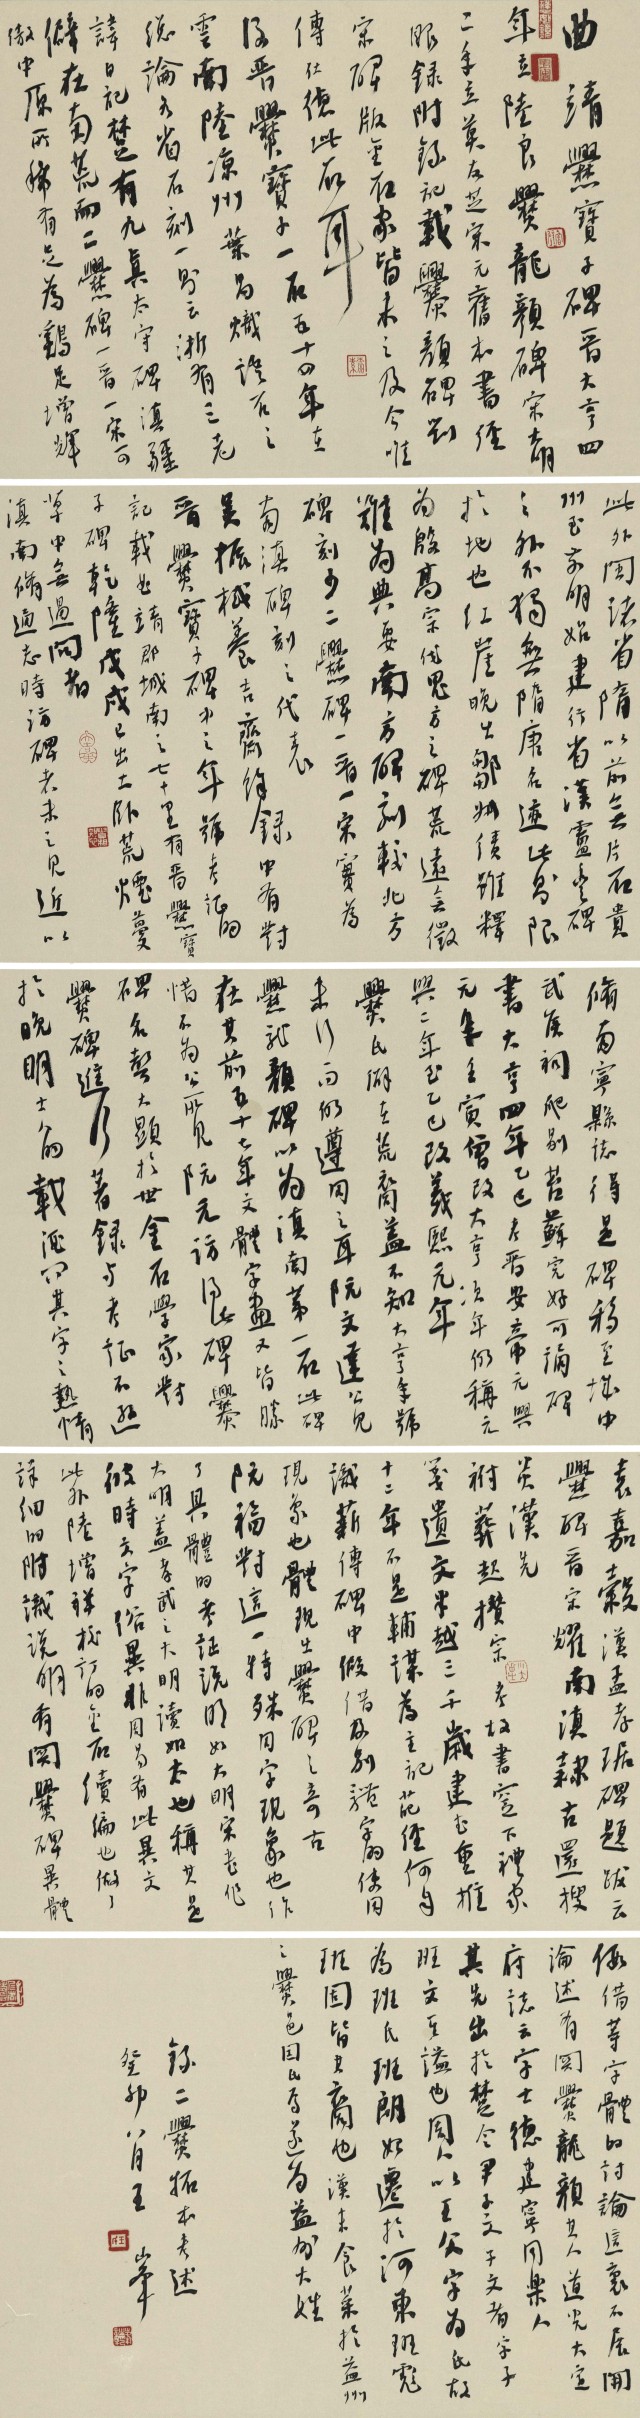 曲靖爨寶子碑晋大亨四
年立陸良爨龍顏碑宋大明
二年立莫友芝宋元舊本書經
眼錄附錄記載爨顏碑劉
宋碑版金石家皆未之及今唯
傳仕德此石耳
後晋爨寶子一石五十四年在
雲南陸凉州葉昌熾語石之
總論各省石刻一則云浙有三老
諱日記楚有九真太守碑滇疆
僻在南荒而二爨碑一晋一宋可
儆中原所稀有足為鷄足增輝
此外閩諸省隋以前無片石貴
州至前明始建行省漢盧豐碑
之外不獨無隋唐名迹此則限
於地也紅崖晚出鄒叔績雖釋
為殷高宗伐鬼方之碑荒遠無徵
難為典要南方碑刻較北方
碑刻少二爨碑一晋一宋實為
南滇碑刻之代表
吳振棫養吉齋餘錄中有對
晋爨寶子碑中之年號考証的
記載曲靖郡城南之七十里有晋爨寶
子碑乾隆戊戌已出土卧荒煙蔓
草中無過問者
滇南脩通志時訪碑者未之見近以
脩南寧縣志得是碑移至城中
武侯祠爬剔苔蘚完好可誦碑
書大亨四年乙巳考晋安帝元興
元年壬寅僭改大亨次年仍稱元
興二年至乙巳改義熙元年
爨氏僻在荒裔蓋不知大亨年號
未行而仍遵用之耳阮文達公見
爨龍顏碑以為滇南第一石此碑
在其前五十七年文體字畫又皆勝
惜不為公所見阮元訪得此碑爨
碑名聲大顯於世金石學家對
爨碑進行著錄与考証不遜
於晚明士人的載酒問其字之熱情
袁嘉穀漢孟孝琚碑題跋云
爨碑晋宋耀南滇隸古還搜
炎漢先
祔葬起攢宗考坟書窆下禮家
箋遺文半越三千歲建武重推
十二年不是輔謀為主記葩經何自
識薪傳碑中假借及别體字的使用
現象也體現出爨碑之奇古
阮福對這一特殊用字現象也作
了具體的考証説明如大明宋老作
大明蓋孝武之大明讀如太也稱其是
彼時文字俗異非因另有此異文
此外陸增祥校訂的金石續編也做了
詳細的附識説明有関爨碑異體
假借等字體的討論這裏不展開
論述有関爨龍顏其人道光大定
府誌云字士德建寧同樂人
其先出於楚令尹子文子文者字子
班文至謚也周人以王父字為氏故
為班氏班朗始遷於河東班彪
班固皆其裔也漢末食菜於益州
之爨邑因氏焉遂為益州大姓
錄二爨拓本考述
癸卯八月王峯